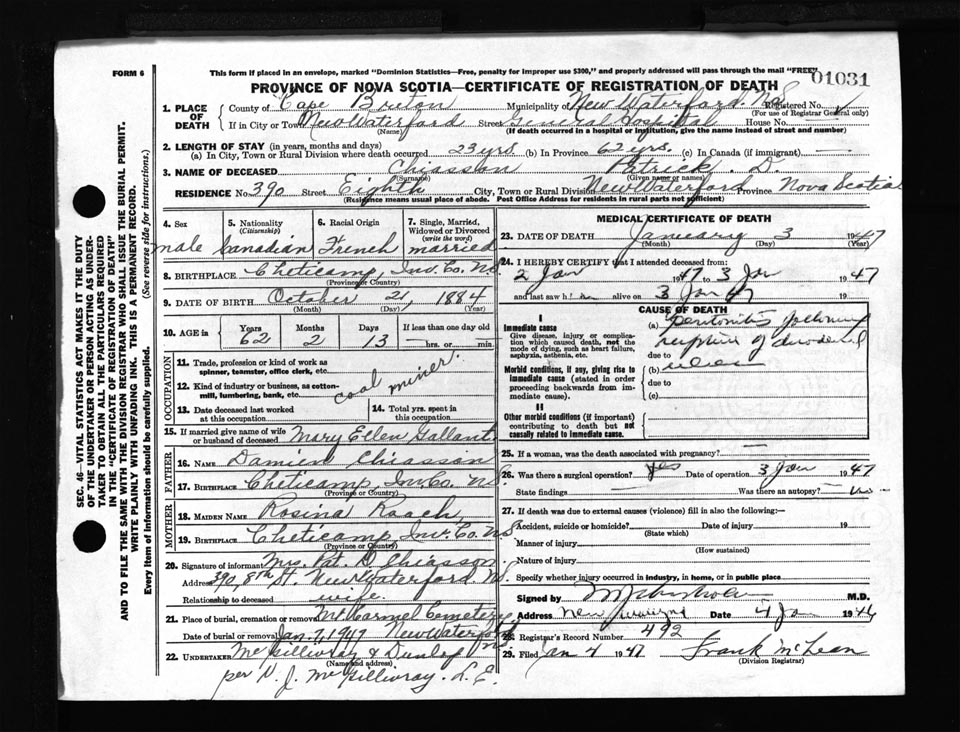 FORM 6
This form if placed in an envelope, marked "Dominion Statistics—Free, penalty for improper use $300," and properly addressed will pass through the mail "FREE"
01031
PROVINCE OF NOVA SCOTIA—CERTIFICATE OF REGISTRATION OF DEATH
1. PLACE OF DEATH
County of Cape Breton Municipality of New Waterford. N.S. Registered No.
(For use of Registrar General only)
If in City or Town New Waterford Street General Hospital House No. —
(Name) (If death occurred in a hospital or institution, give the name instead of street and number)
2. LENGTH OF STAY (in years, months and days)
(a) In City, Town or Rural Division where death occurred 23 yrs. (b) In Province 62 yrs. (c) In Canada (if immigrant) —
3. NAME OF DECEASED Chiasson Patrick. D.
(Surname) (Given name or names)
RESIDENCE No. 390 Street Eighth City, Town or Rural Division New Waterford Province Nova Scotia
(Residence means usual place of abode. Post Office Address for residents in rural parts not sufficient)
4. Sex
male
5. Nationality (Citizenship)
Canadian
6. Racial Origin
French
7. Single, Married, Widowed or Divorced (write the word)
married
8. BIRTHPLACE Cheticamp, Inv. Co. N.S.
(Province or Country)
9. DATE OF BIRTH October 21, 1884
(Month) (Day) (Year)
10. AGE in
Years Months Days If less than one day old
62 2 13 —hrs. or — min.
OCCUPATION
11. Trade, profession or kind of work as spinner, teamster, office clerk, etc.
12. Kind of industry or business, as cotton-mill, lumbering, bank, etc.
coal miner.
13. Date deceased last worked at this occupation
14. Total yrs. spent in this occupation
15. If married give name of wife or husband of deceased Mary Ellen Gallant
FATHER
16. NAME Damien Chiasson
17. BIRTHPLACE Cheticamp, Inv. Co. N.S.
(Province or Country)
MOTHER
18. MAIDEN NAME Rosina Roach
19. BIRTHPLACE Cheticamp, Inv. Co. N.S.
(Province or Country)
20. Signature of informant Mrs. Pat. D. Chiasson
Address 390, 8th St. New Waterford. N.S.
Relationship to deceased wife.
21. Place of burial, cremation or removal Mt. Carmel Cemetery
Date of burial or removal Jan. 7, 1947 New Waterford N.S.
22. UNDERTAKER McGillivray & Dunlap
(Name and address)
per N. J. McGillivray. L.E.
MEDICAL CERTIFICATE OF DEATH
23. DATE OF DEATH January 3 1947
(Month) (Day) (Year)
24. I HEREBY CERTIFY that I attended deceased from:
2 Jan 1947 to 3 Jan 1947
and last saw him alive on 3 Jan 47 19
CAUSE OF DEATH
I
Immediate cause
Give disease, injury or complication which caused death, not the mode of dying, such as heart failure, asphyxia, asthenia, etc.
(a) peritonitis following
rupture of duodenal
due to
(b) ulcer
Morbid conditions, if any, giving rise to immediate cause (stated in order proceeding backwards from immediate cause).
due to
(c)
II
Other morbid conditions (if important) contributing to death but not causally related to immediate cause.
25. If a woman, was the death associated with pregnancy?
26. Was there a surgical operation? Yes Date of operation 3 Jan 1947
State findings — Was there an autopsy? no
27. If death was due to external causes (violence) fill in also the following:—
Accident, suicide or homicide? Date of injury 19
(State which)
Manner of injury
(How sustained)
Nature of injury
Specify whether injury occurred in industry, in home, or in public place
Signed by M.D.
Address Date 4 Jan 1946
28. Registrar's Record Number 492
29. Filed Jan 4 1947 Frank McLean
(Division Registrar)
SEC. 46—VITAL STATISTICS ACT MAKES IT THE DUTY
OF THE UNDERTAKER OR PERSON ACTING AS UNDER-
TAKER TO OBTAIN ALL THE PARTICULARS REQUIRED
IN THE "CERTIFICATE OF REGISTRATION OF DEATH"
AND TO FILE THE SAME WITH THE DIVISION REGISTRAR WHO SHALL ISSUE THE BURIAL PERMIT.
WRITE PLAINLY WITH UNFADING INK. THIS IS A PERMANENT RECORD.
Every item of Information should be carefully supplied. (See reverse side for instructions.)